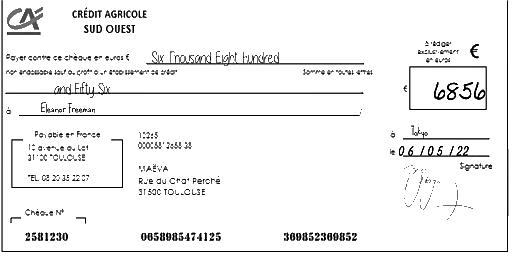 CA
CRÉDIT AGRICOLE
SUD OUEST
à rédiger
exclusivement
en euros €
Payer contre ce chèque en euros € Six Thousand Eight hundred
non endossable sauf au profit d'un établissement de crédit Somme en toutes lettres
and Fifty Six
€ 6856
à Eleanor Freeman
Payable en France
10 avenue du Lot
31100 TOULOUSE
TEL. 08 20 35 22 07
10265
00005812658 38
MAËVA
Rue du Chat Perché
31500 TOULOUSE
à Tokyo
le 06/05/22
Signature
Chèque N°
2581230 0658985474125 369852369852